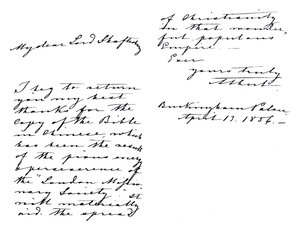 My dear Lord Shaftesbury
I beg to return
you my best
thanks for the
copy of the Bible
in Chinese, which
has been the result
of the pious energy
& perseverance of
the "London Missio-
nary Society" It
will materially
aid the spread
of Christianity
in that wonder-
ful populous
Empire.—
Ever
yours truly
Albert
Buckingham Palace
April 13. 1856.—